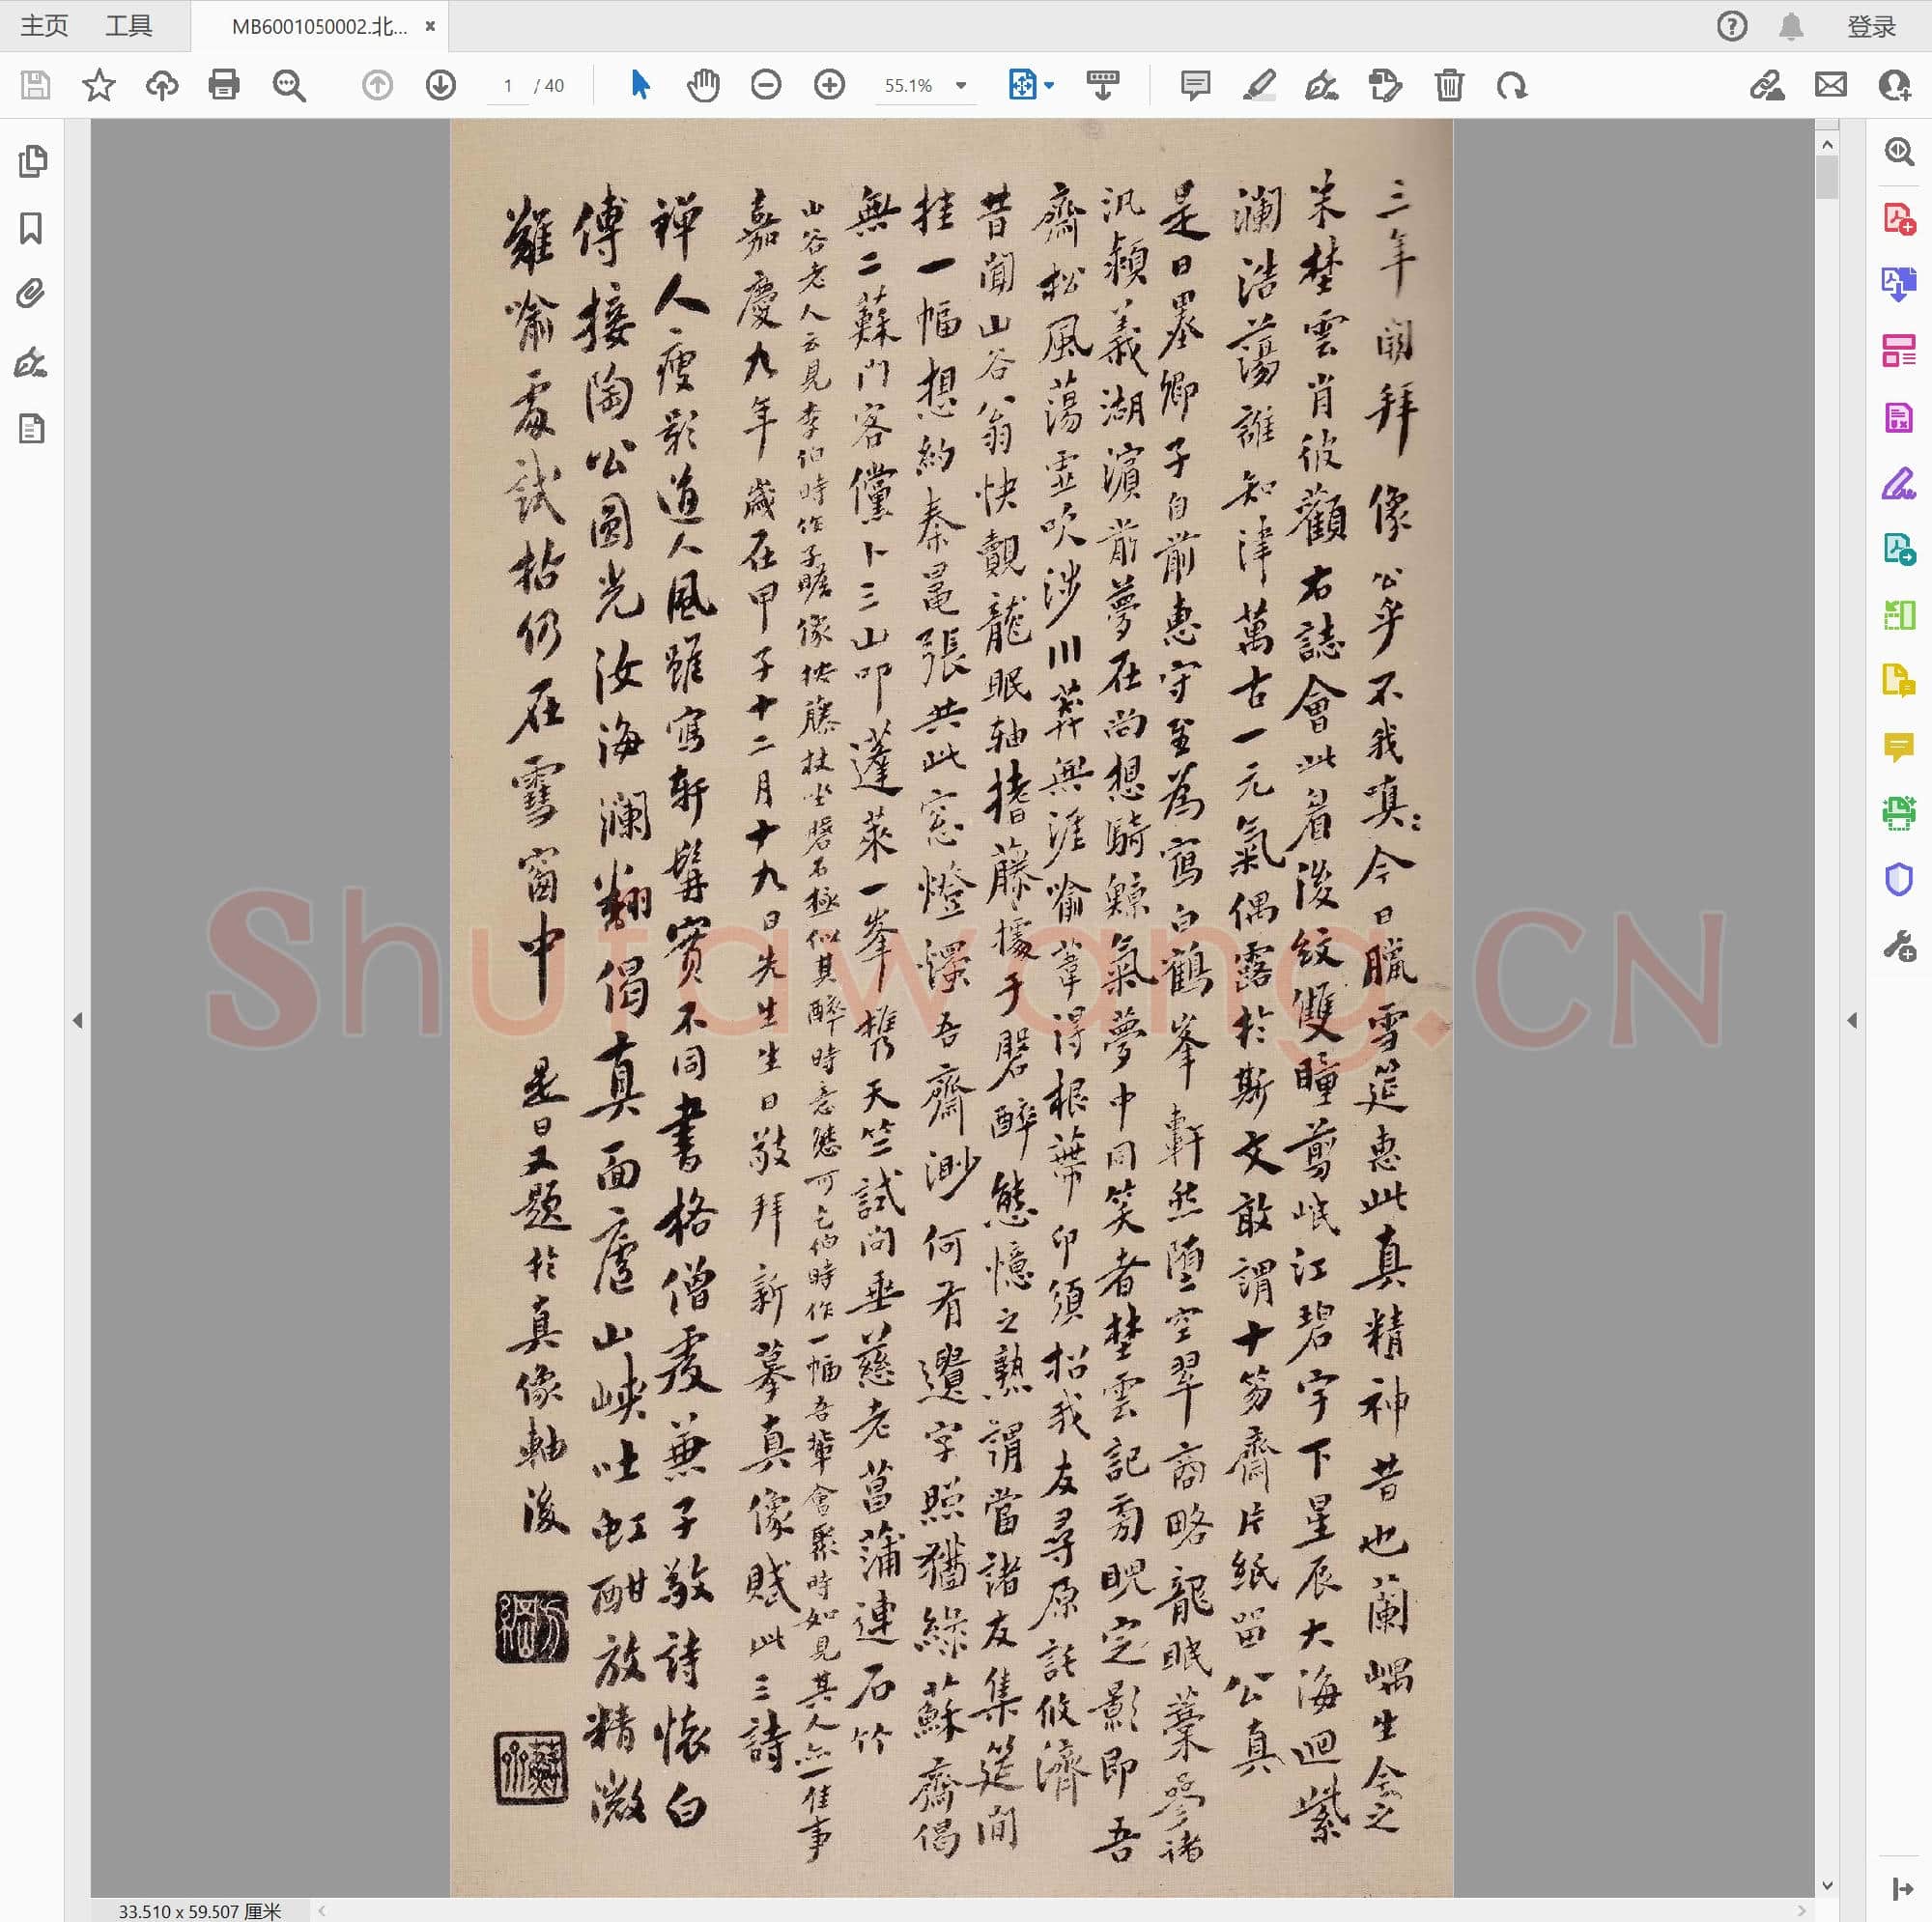 主页 工具 MB6001050002.北... ×
登录
1 / 40
55.1%
三年閒拜像公乎不我嗔〻今日臘雪筵惠此真精神昔也蘭嵎生今之
朱埜雲肖彼觀右誌會此眉後紋雙瞳剪岷江碧宇下星辰大海迴紫
瀾浩蕩誰知津萬古一元氣偶露於斯文敢謂十笏齋片紙留公真
是日墨卿子自前惠守至為寫白鶴峯軒然墮空翠商略龍眠藁參諸
汎潁義湖濱前夢在尚想騎鯨氣夢中同笑者埜雲記旁睨定影即吾
齋松風蕩虛吹涉川莽無涯喻葦得根蒂卬須招我友尋原託攸濟
昔聞山谷翁快覩龍眠軸措藤據于磐醉態憶之熟謂當諸友集筵間
挂一幅想約秦黽張共此窓燈濮吾齋渺何有遺字照猶綠蘇齋偈
無二蘇門客儻卜三山叩蓬萊一峯攜天竺試問垂慈老菖蒲連石竹
山谷老人云見李伯時作子瞻像按藤杖坐磐石極似其醉時意態可乞伯時作一幅吾輩會聚時如見其人亦一佳事
嘉慶九年歲在甲子十二月十九日先生生日敬拜新摹真像賦此三詩
禅人瘦影道人風雖寫軒髯實不同書格僧虔兼子敬詩懷白
傅接陶公圓光汝海瀾翻偈真面廬山峽吐虹酣放精微
難喻處試拈仍在雪窗中 是日又題於真像軸後
Shufawang.CN
33.510 x 59.507 厘米